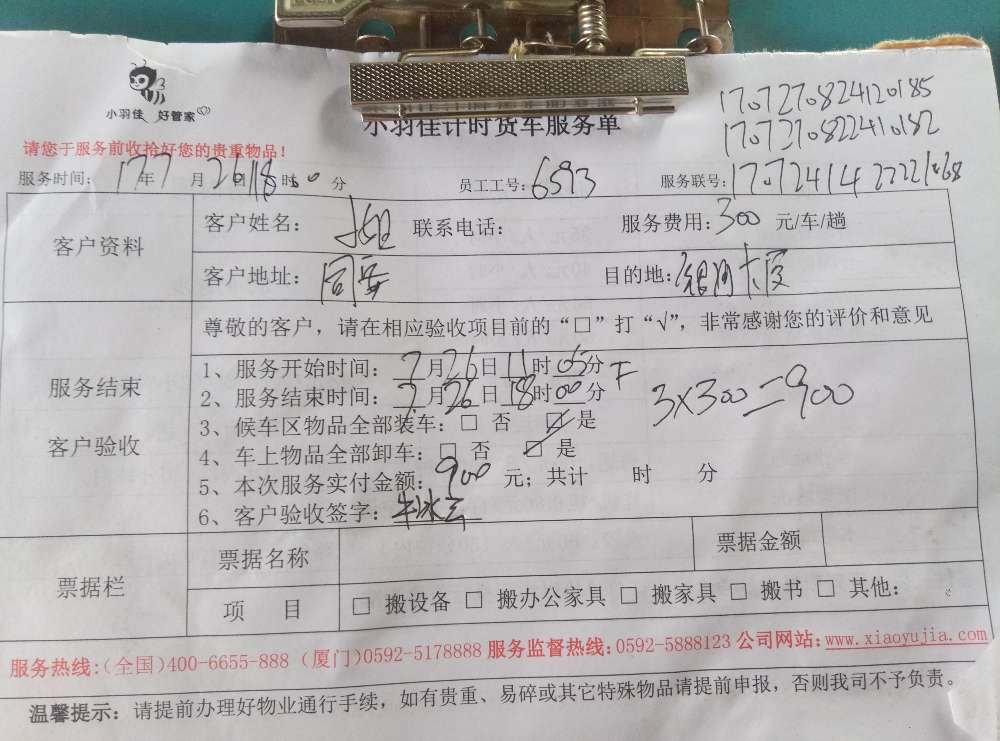 小羽佳 好管家
小羽佳计时货车服务单
1707270824120185
1707270822410182
请您于服务前收拾好您的贵重物品！
服务时间：17年7月26日18时00分 员工工号：6593 服务联号：
客户资料
客户姓名： 联系电话： 服务费用：300元/车/趟
客户地址：同安 目的地：银河大厦
尊敬的客户，请在相应验收项目前的“□”打“√”，非常感谢您的评价和意见
服务结束
客户验收
1、服务开始时间：7月26日11时05分
2、服务结束时间：7月26日18时00分
3×300=900
3、候车区物品全部装车：□ 否 ☑ 是
4、车上物品全部卸车：□ 否 ☑ 是
5、本次服务实付金额：900元；共计 时 分
6、客户验收签字：牛冰云
票据栏
票据名称 票据金额
项 目 □ 搬设备 □ 搬办公家具 □ 搬家具 □ 搬书 □ 其他：
服务热线：(全国)400-6655-888 (厦门)0592-5178888 服务监督热线：0592-5888123 公司网站：www.xiaoyujia.com
温馨提示：请提前办理好物业通行手续，如有贵重、易碎或其它特殊物品请提前申报，否则我司不予负责。